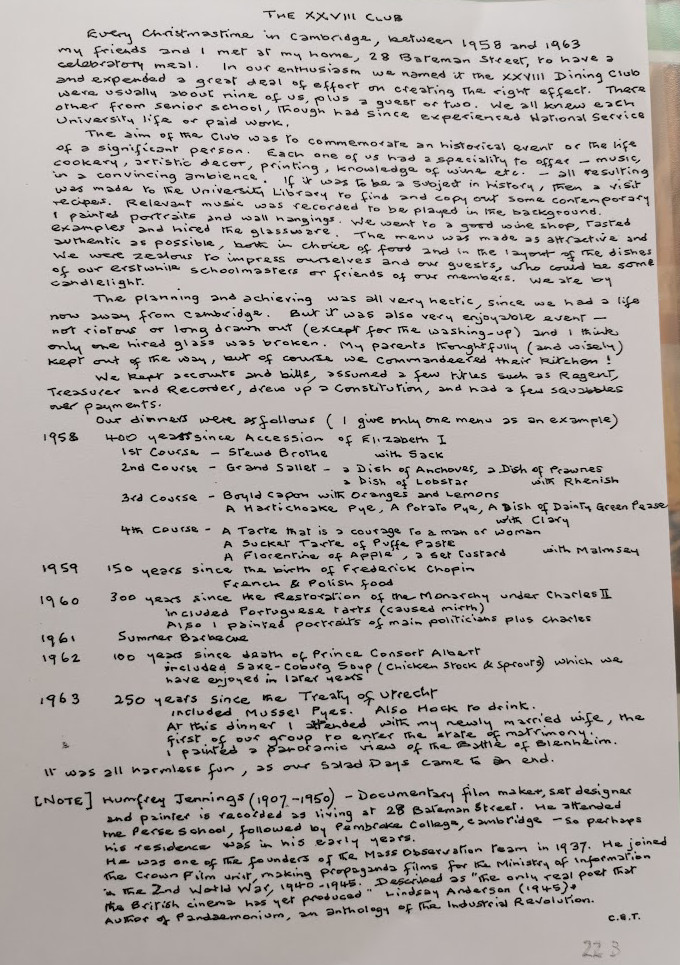 THE XXVIII CLUB
Every Christmastime in Cambridge, between 1958 and 1963
my friends and I met at my home, 28 Bateman Street, to have a
celebratory meal. In our enthusiasm we named it the XXVIII Dining Club
and expended a great deal of effort on creating the right effect. There
were usually about nine of us, plus a guest or two. We all knew each
other from senior school, though had since experienced National Service
University life or paid work.
The aim of the Club was to commemorate an historical event or the life
of a significant person. Each one of us had a speciality to offer – music,
cookery, artistic decor, printing, knowledge of wine etc. – all resulting
in a convincing ambience. If it was to be a subject in history, then a visit
was made to the University Library to find and copy out some contemporary
recipes. Relevant music was recorded to be played in the background.
I painted portraits and wall hangings. We went to a good wine shop, tasted
examples and hired the glassware. The menu was made as attractive and
authentic as possible, both in choice of food and in the layout of the dishes
We were zealous to impress ourselves and our guests, who could be some
of our erstwhile schoolmasters or friends of our members. We ate by
candlelight.
The planning and achieving was all very hectic, since we had a life
now away from Cambridge. But it was also very enjoyable event –
not riotous or long drawn out (except for the washing-up) and I think
only one hired glass was broken. My parents thoughtfully (and wisely)
kept out of the way, but of course we commandeered their kitchen!
We kept accounts and bills, assumed a few titles such as Regent,
Treasurer and Recorder, drew up a Constitution, and had a few squabbles
over payments.
Our dinners were as follows (I give only one menu as an example)
1958 400 years since Accession of Elizabeth I
1st Course – Stewd Brothe with Sack
2nd Course – Grand Sallet – a Dish of Anchoves, a Dish of Prawnes
a Dish of Lobstar with Rhenish
3rd Course – Boyld Capon with Oranges and Lemons
A Hartichoake Pye, A Potato Pye, A Dish of Dainty Green Pease
with Clary
4th Course – A Tarte that is a courage to a man or woman
A Sucket Tarte of Puffe Paste
A Florentine of Apple, a Set Custard with Malmsey
1959 150 years since the birth of Frederick Chopin
French & Polish food
1960 300 years since the Restoration of the Monarchy under Charles II
included Portuguese tarts (caused mirth)
Also I painted portraits of main politicians plus Charles
1961 Summer Barbecue
1962 100 years since death of Prince Consort Albert
included Saxe-Coburg Soup (Chicken Stock & Sprouts) which we
have enjoyed in later years
1963 250 years since the Treaty of Utrecht
included Mussel Pyes. Also Hock to drink.
At this dinner I attended with my newly married wife, the
first of our group to enter the state of matrimony.
I painted a panoramic view of the Battle of Blenheim.
It was all harmless fun, as our Salad Days came to an end.
[NOTE] Humfrey Jennings (1907–1950) – Documentary film maker, set designer
and painter is recorded as living at 28 Bateman Street. He attended
the Perse School, followed by Pembroke College, Cambridge – so perhaps
his residence was in his early years.
He was one of the founders of the Mass Observation team in 1937. He joined
the Crown Film Unit, making propaganda films for the Ministry of Information
in the 2nd World War, 1940–1945. Described as "the only real poet that
the British cinema has yet produced" Lindsay Anderson (1945).
Author of Pandaemonium, an anthology of the Industrial Revolution.
C.B.T.
223